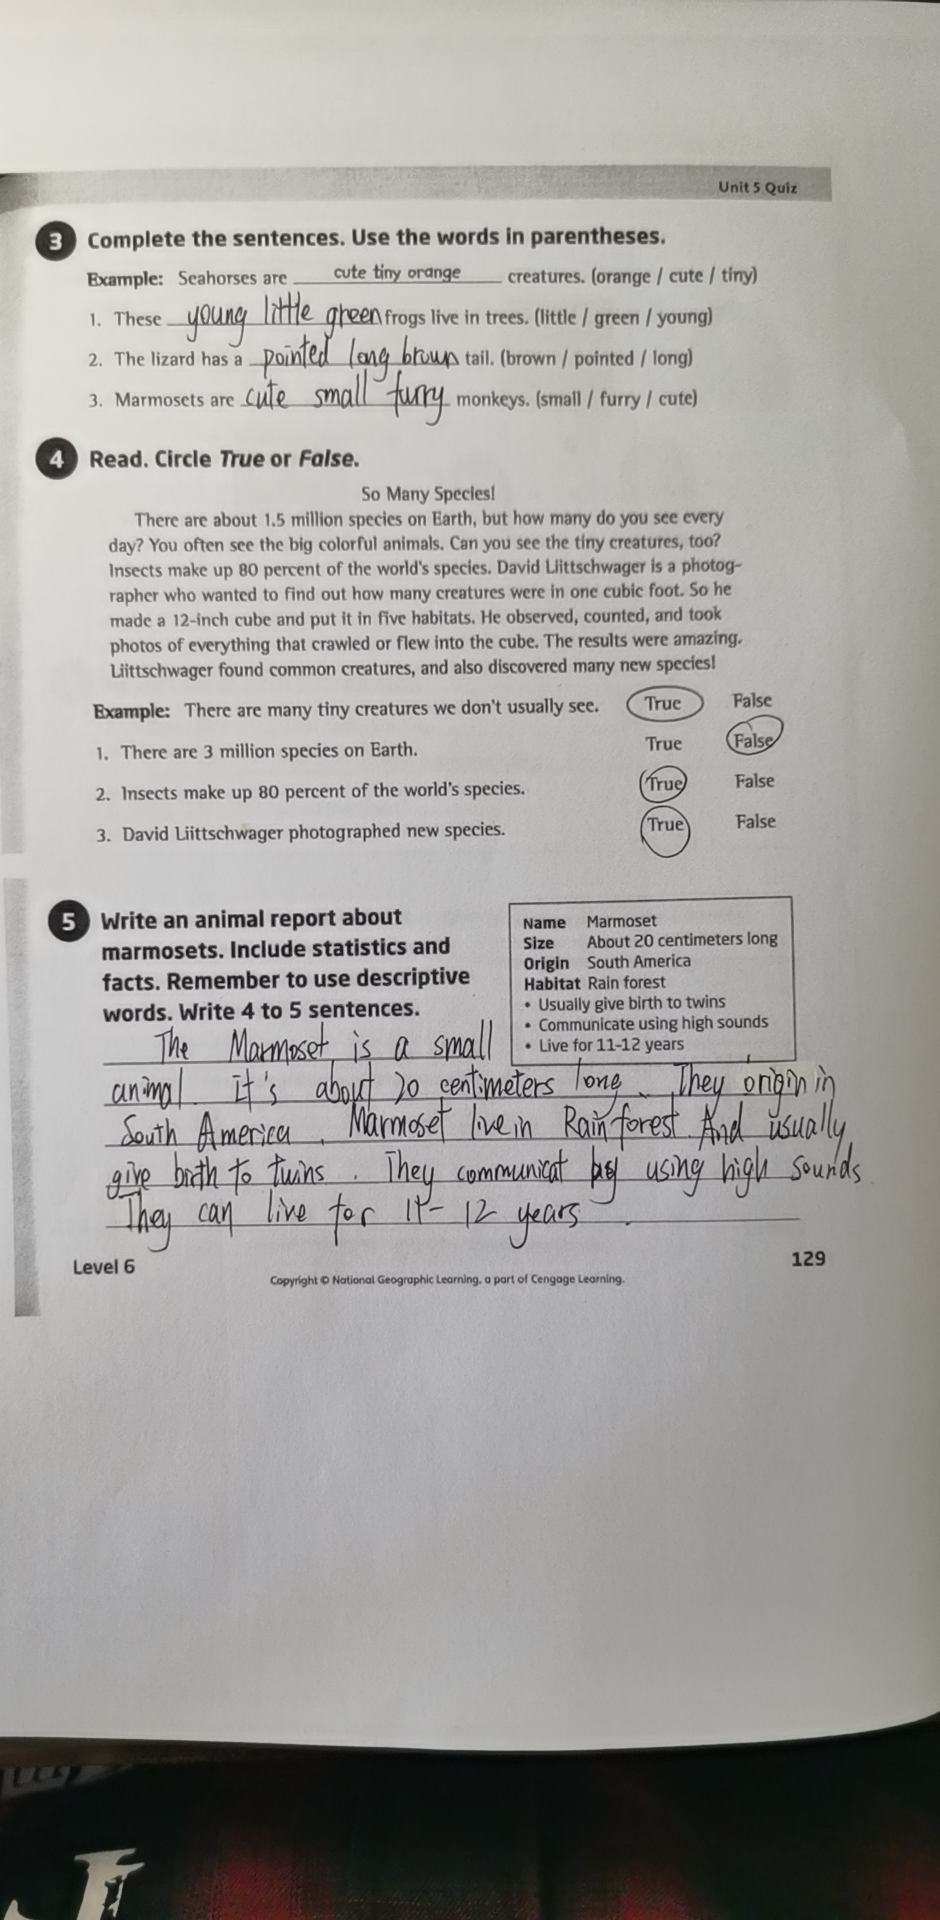 Unit 5 Quiz
3 Complete the sentences. Use the words in parentheses.
Example: Seahorses are cute tiny orange creatures. (orange / cute / tiny)
1. These young little green frogs live in trees. (little / green / young)
2. The lizard has a pointed long brown tail. (brown / pointed / long)
3. Marmosets are cute small furry monkeys. (small / furry / cute)
4 Read. Circle True or False.
So Many Species!
There are about 1.5 million species on Earth, but how many do you see every
day? You often see the big colorful animals. Can you see the tiny creatures, too?
Insects make up 80 percent of the world's species. David Liittschwager is a photog-
rapher who wanted to find out how many creatures were in one cubic foot. So he
made a 12-inch cube and put it in five habitats. He observed, counted, and took
photos of everything that crawled or flew into the cube. The results were amazing.
Liittschwager found common creatures, and also discovered many new species!
Example: There are many tiny creatures we don't usually see. True False
1. There are 3 million species on Earth. True False
2. Insects make up 80 percent of the world's species. True False
3. David Liittschwager photographed new species. True False
5 Write an animal report about
marmosets. Include statistics and
facts. Remember to use descriptive
words. Write 4 to 5 sentences.
Name Marmoset
Size About 20 centimeters long
Origin South America
Habitat Rain forest
• Usually give birth to twins
• Communicate using high sounds
• Live for 11-12 years
The Marmoset is a small
animal. It's about 20 centimeters long. They origin in
South America. Marmoset live in Rain forest. And usually
give birth to twins. They communicat by using high sounds
They can live for 11-12 years.
Level 6
129
Copyright © National Geographic Learning, a part of Cengage Learning.